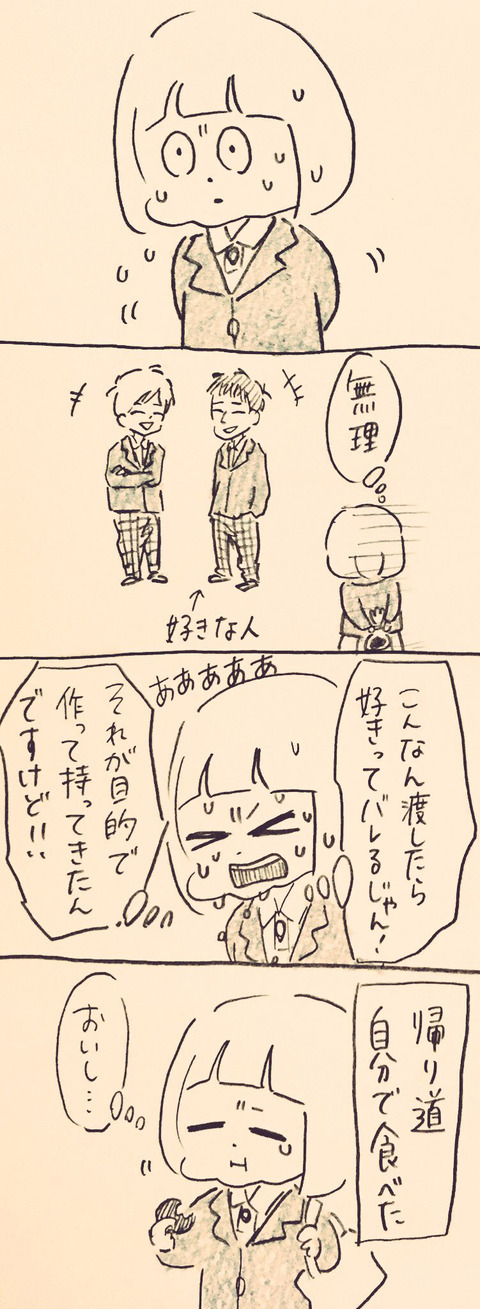 無理
好きな人
こんなん渡したら
好きってバレるじゃん!
あああああ
それが目的で
作って持ってきたん
ですけど!!
帰り道
自分で食べた
おいし…